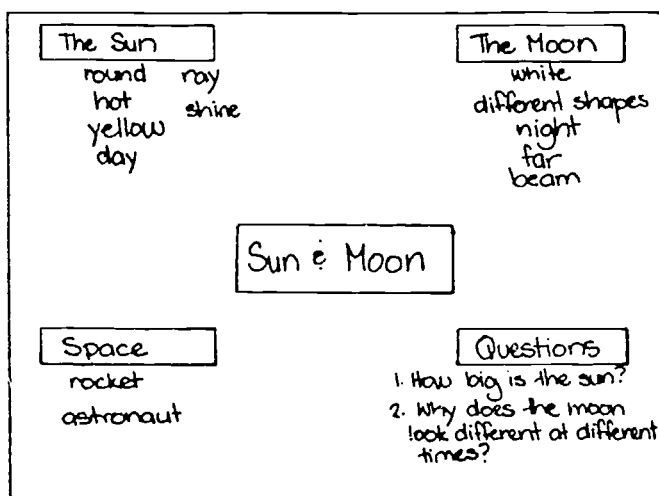 The Sun
round ray
hot shine
yellow
day
The Moon
white
different shapes
night
far
beam
Sun & Moon
Space
rocket
astronaut
Questions
1. How big is the sun?
2. Why does the moon
look different at different
times?